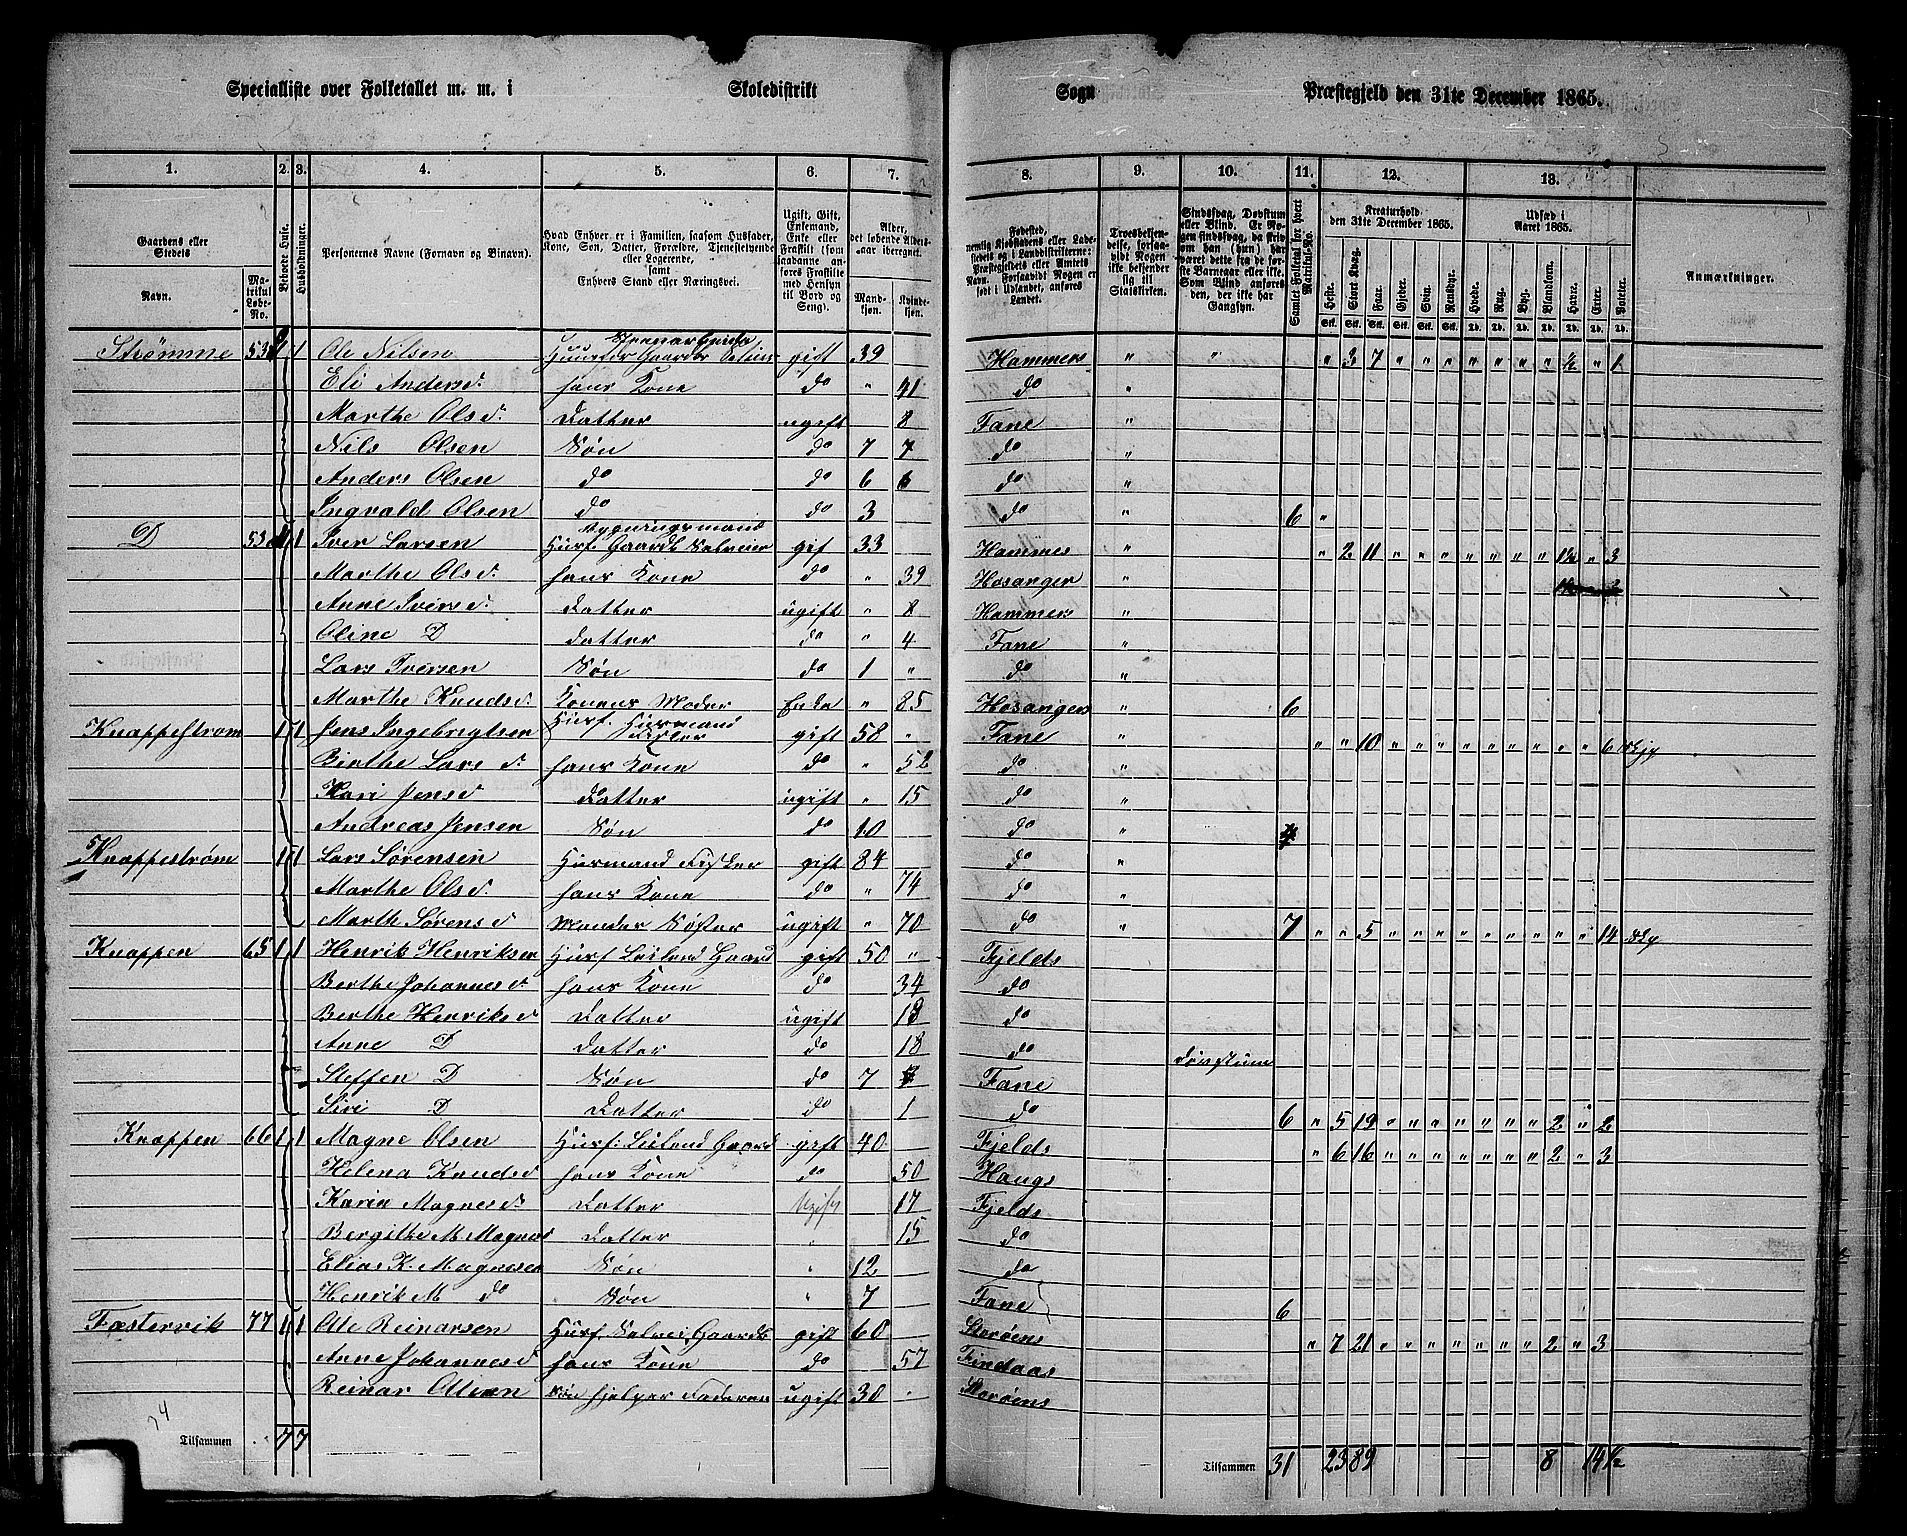 Specialliste over Folketallet m. m. i Skoledistrikt Sogn Præstegjeld den 31te December 1865.
1. 2. 3. 4. 5. 6. 7. 8. 9. 10. 11. 12. 13.
Gaardens eller Stedets
Navn. Matrikul Løbe-No.
Beboede Huse.
Husholdninger.
Personernes Navne (Fornavn og Binavn).
Hvad Enhver er i Familien, saasom Husfader, Kone, Søn, Datter, Forældre, Tjenestetyende eller Logerende, samt Enhvers Stand eller Næringsvei.
Ugift, Gift, Enkemand, Enke eller Fraskilt (som saadanne anføres Fraskilte med Hensyn til Bord og Seng).
Alder, det løbende Alders-aar iberegnet.
Mand-kjøn. Kvinde-kjøn.
Fødested,
Troesbekjendelse, forsaavidt Nogen ikke bekjender sig til Statskirken.
Sindssvag, Døvstum eller Blind.
Samlet Folketal for hvert Matrikul-No.
Kreaturhold den 31te December 1865.
Heste. Stort Kvæg. Faar. Gjeder. Svin. Rensdyr.
Udsæd i Aaret 1865.
Hvede. Rug. Byg. Blandkorn. Havre. Erter. Poteter.
Anmærkninger.
Strømme 53 1 Ole Nilsen gift 39 Hammers " " " 3 7 " " " " " " " ½ " 1
Eli Andersd. hans Kone do " 41 do "
Marthe Olsd. Datter ugift 8 Fane "
Nils Olsen Søn do 7 do "
Anders Olsen do do 6 do "
Ingvald Olsen do do 3 do " 6 "
D 53 1 Iver Larsen Husf. Gaardb Selveier gif 33 Hammes " " 2 11 " " " " " " " 1½ " 3
Marthe Olsd. hans Kone do " 39 Hosanger "
Anne Iversd. Datter ugift " 8 Hammers "
Oline D Datter do " 4 Fane "
Lars Iversen Søn do 1 " do "
Marthe Knudsd. Konens Moder Enke " 85 Hosangers " 6
Knappestrøm 1 1 Jens Ingebrigtsen Husf. Husmand Fisker gift 58 " Fane " " " 10 " " " " " " " " " 6
Birthe Larsd. hans Kone do " 52 do "
Kari Jensd Datter ugift " 15 do "
Andreas Jensen Søn do 10 do "
Knappestrøm 1 1 Lars Sørensen Husmand Fisker gift 84 do "
Marthe Olsd. hans Kone do " 74 do "
Marthe Sørensd Søster ugift " 70 do " 7 " " 5 " " " " " " " " " 14
Knappen 65 1 1 Henrik Henriksen Husf Leilend Gaard gift 50 " Fjelds
Berthe Johannesd. hans Kone do 34 do
Berthe Henriksd Datter ugift 18 do
Anne D Datter do 18 do Døvstum
Steffen D Søn do 7 Fane
Siri D Datter do 1 do 6 " 5 19 " " " " " " " 2 " 2
Knappen 66 1 1 Magne Olsen Husf: Leilend Gaard gift 40 Fjelds " 6 16 " " " " " " " 2 " 3
Helena Knudsd hans Kone do 50 Haugs
Karen Magnesd. Datter Ugift 17 Fjelds
Bergithe M. Magnesd Datter " 15 do
Elias K. Magnesen Søn " 12 do
Henrik M do Søn " 7 Fane 6
Fæstervik 77 1 1 Ole Reinarsen Husf. Selvei Gaardb gift 60 Storøens " 7 21 " " " " " " 2 " 3
Anne Johannesd hans Kone do 57 Findaas
Reinar Olsen Søn hjelper Faderen ugift 30 Storøens
Tilsammen 7 7
Tilsammen 31 23 89 8 14½